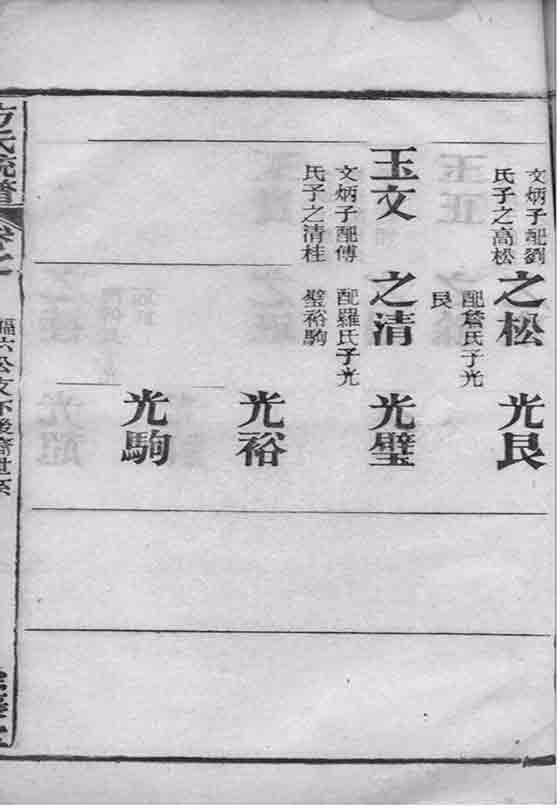 文炳子配劉
氏子之高松
之松
配詹氏子光
艮
光艮
玉文
文炳子配傅
氏子之清桂
之清
配羅氏子光
璧裕駒
光璧
光裕
光駒
方氏統譜
六公 下後裔世系